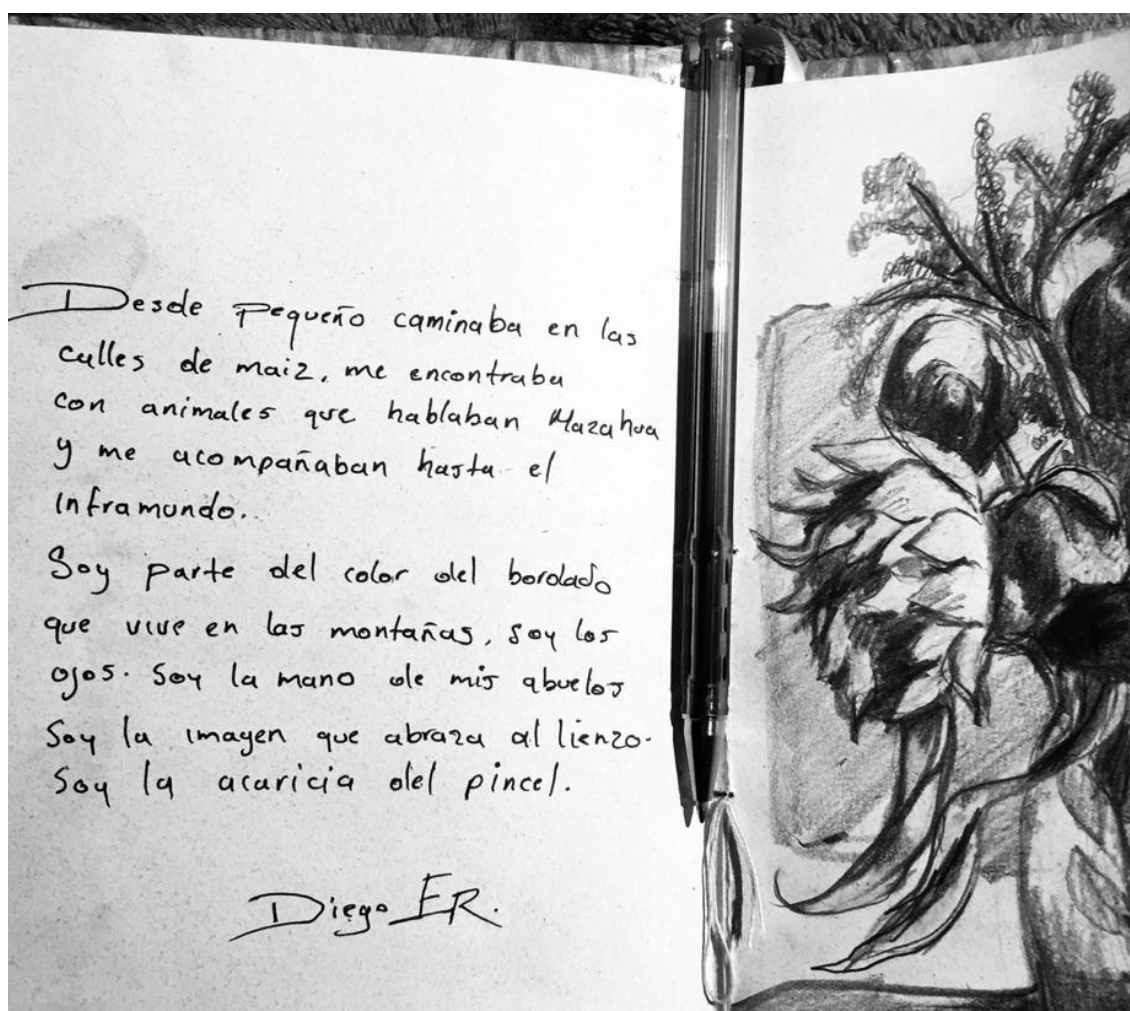 Desde pequeño caminaba en las
calles de maiz, me encontraba
con animales que hablaban Mazahua
y me acompañaban hasta el
inframundo.
Soy parte del color del bordado
que vive en las montañas, soy los
ojos. Soy la mano de mis abuelos
Soy la imagen que abraza al lienzo.
Soy la acaricia del pincel.
Diego ER.